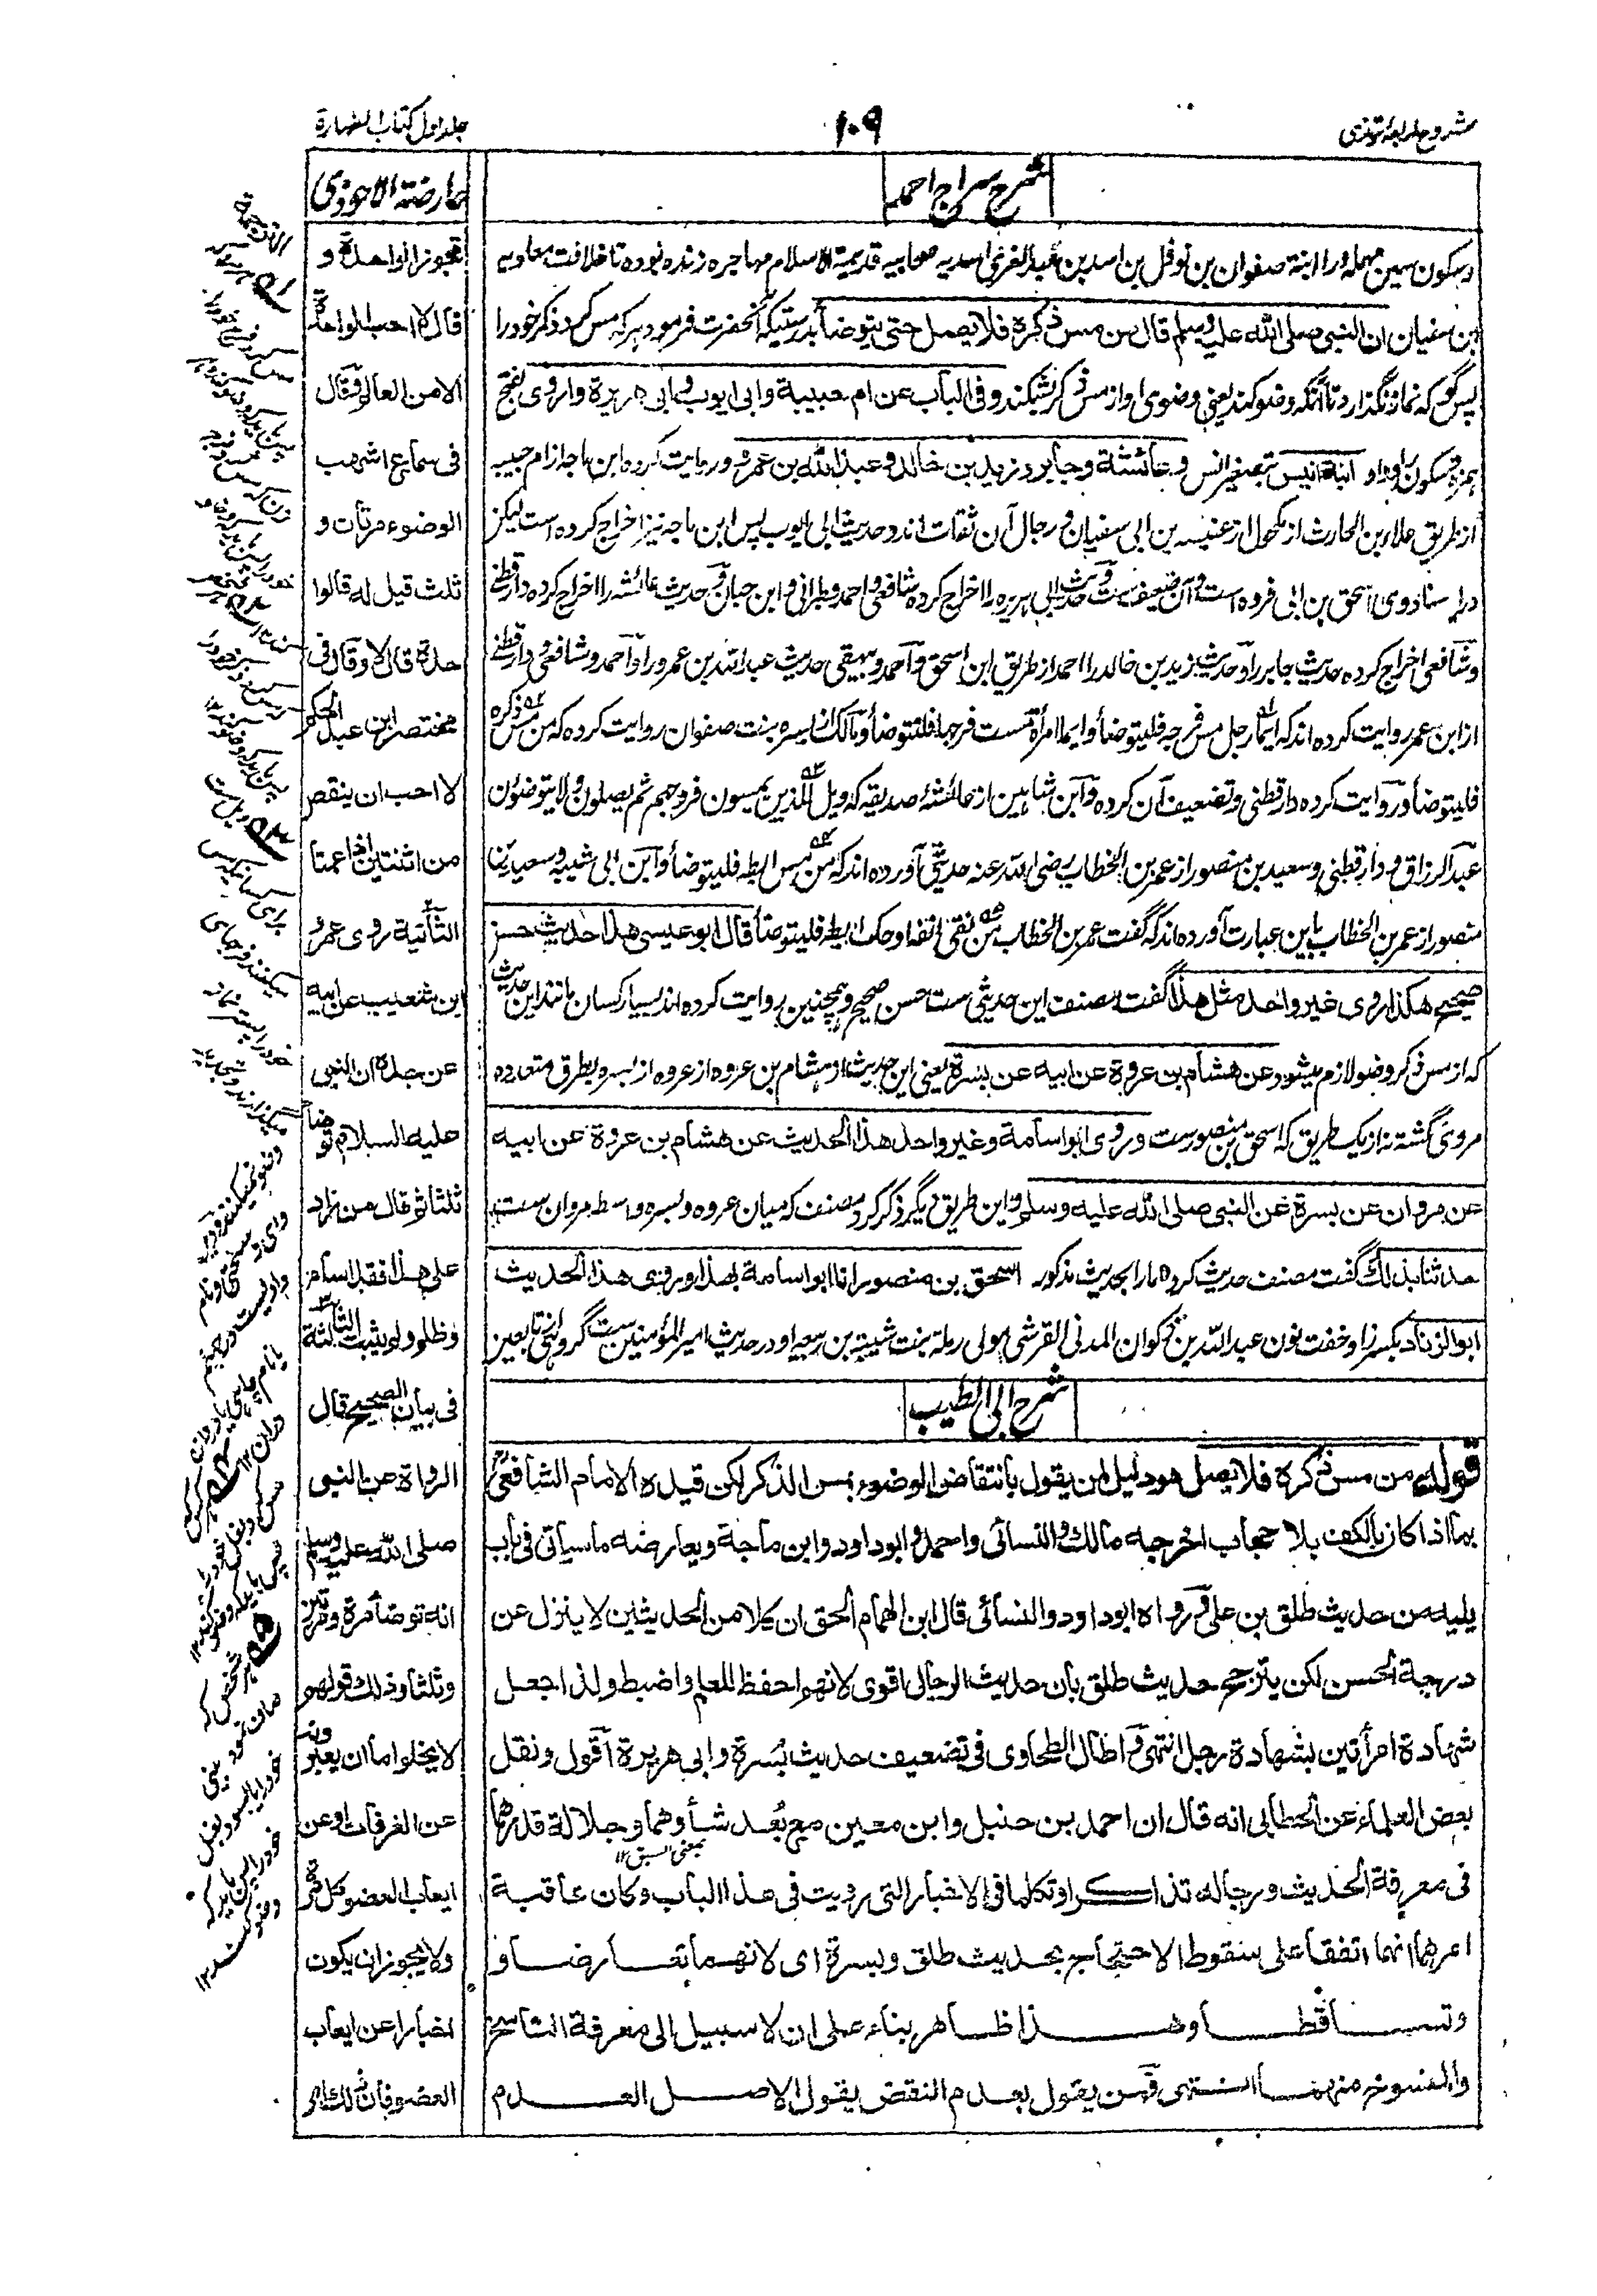 شروح اربعۂ ترمذی
۱۰۹
جلد اول کتاب الطهارة
شرح سراج احمد
وسکون سین مهمله و را ابنة صفوان بن نوفل بن اسد بن عبد العزی اسدیه صحابیه قدیمة الاسلام مهاجره زنده بوده تا خلافت معاویه
بن سفیان ان النبی صلی الله علیه وسلم قال من مس ذکره فلا یصل حتی یتوضأ بدرستیکه آنحضرت فرمود هر که مس کرد ذکر خود را
پس گو که نماز نگذارد تا آنکه وضو کند یعنی وضوی او از مس ذکر شکند وفی الباب عن ام حبیبة وابی ایوب وابی هریرة واروی بفتح
همزه وسکون را و واو ابنة انیس بتصغیر انس وعائشة وجابر وزید بن خالد وعبد الله بن عمرو روایت کرده ابن ماجه از ام حبیبه
از طریق علاء بن الحارث از مکحول از عنبسه بن ابی سفیان و رجال آن ثقات اند و حدیث ابی ایوب پس ابن ماجه نیز اخراج کرده است لیکن
در اسناد وی اسحق بن ابی فروه است و آن ضعیف ست و حدیث ابی هریره را اخراج کرده شافعی و احمد و طبرانی و ابن حبان و حدیث عائشه را اخراج کرده دارقطنی
و شافعی اخراج کرده حدیث جابر را و حدیث زید بن خالد را احمد از طریق ابن اسحق و احمد و بیهقی حدیث عبد الله بن عمرو را و احمد و شافعی و دارقطنی
از ابن عمر روایت کرده اند که ایما رجل مس فرجه فلیتوضأ وایما امرأة مست فرجها فلتتوضأ و مالک از بسره بنت صفوان روایت کرده که من مس ذکره
فلیتوضأ و روایت کرده دارقطنی و تضعیف آن کرده و ابن شاهین از عائشه صدیقه که ویل للذین یمسون فروجهم ثم یصلون ولا یتوضئون
عبد الرزاق و دارقطنی و سعید بن منصور از عمر بن الخطاب رضی الله عنه حدیثی آورده اند که من مس ابطه فلیتوضأ و ابن ابی شیبه و سعید بن
منصور از عمر بن الخطاب باین عبارت آورده اند که گفت عمر بن الخطاب من نقی انفه او حک ابطه فلیتوضأ قال ابو عیسی هذا حدیث حسن
صحیح هکذا روی غیر واحد مثل هذا گفت مصنف این حدیثی ست حسن صحیح و همچنین روایت کرده اند بسیار کسان مانند این حدیث
که از مس ذکر وضو لازم میشود عن هشام بن عروة عن ابیه عن بسرة یعنی این حدیث از هشام بن عروه از عروه از بسره بطرق متعدده
مروی گشته نه از یک طریق که اسحق بن منصور ست وروی ابو اسامة وغیر واحد هذا الحدیث عن هشام بن عروة عن ابیه
عن مروان عن بسرة عن النبی صلی الله علیه وسلم و این طریق دیگر ذکر کرد مصنف که میان عروه و بسره واسطه مروان ست
حدثنا بذلک گفت مصنف حدیث کرد ما را بحدیث مذکور اسحق بن منصور انا ابو اسامة بهذا وروی هذا الحدیث
ابو الزناد بکسر زا و خفت نون عبد الله بن ذکوان المدنی القرشی مولی رملة بنت شیبة بن ربیعه او در حدیث امیر المؤمنین ست گروهی از تابعین
شرح ابی الطیب
قوله من مس ذکره فلا یصل هو دلیل لمن یقول بانتقاض الوضوء بمس الذکر لکن قیده الامام الشافعی
بما اذا کان بالکف بلا حجاب اخرجه مالک والنسائی واحمد وابو داود وابن ماجة ویعارضه ما سیأتی فی باب
یلیه من حدیث طلق بن علی ورواه ابو داود والنسائی قال ابن الهمام الحق ان کلا من الحدیثین لا ینزل عن
درجة الحسن لکن یترجح حدیث طلق بان حدیث الرجال اقوی لانهم احفظ للعلم واضبط ولذا جعل
شهادة امرأتین بشهادة رجل انتهی واطال الطحاوی فی تضعیف حدیث بسرة وابی هریرة اقول ونقل
بعض العلماء عن الخطابی انه قال ان احمد بن حنبل وابن معین مع بُعد شأوهما وجلالة قدرهما
بمعنی السبق ۱۲
فی معرفة الحدیث ورجاله تذاکرا وتکلما فی الاخبار التی رویت فی هذا الباب وکان عاقبة
امرهما انهما اتفقا علی سقوط الاحتجاج بحدیث طلق وبسرة ای لانهما تعارضا و
وتساقطا وهذا ظاهر بناء علی ان لا سبیل الی معرفة الناسخ
والمنسوخ منهما انتهی ومن یقول بعدم النقض یقول الاصل العدم
عارضة الاحوذی
تجوز الواحدة و
قال لا احب الواحدة
الا من العالم وقال
فی سماع اشهب
الوضوء مرتان و
ثلث قیل له قالوا
حدة قال لا وقال فی
مختصر ابن عبد الحکم
لا احب ان ینقص
من اثنتین اذا عمتا
الثانیة روی عمرو
ابن شعیب عن ابیه
عن جده ان النبی
علیه السلام توضأ
ثلثا ثم قال من زاد
علی هذا فقد اساء
وظلم ولم یثبت الثالثة
فی بیان الصحیح قال
الرواة عن النبی
صلی الله علیه وسلم
انه توضأ مرة ومرتین
وثلثا وذلک قولهم
لا یخلو اما ان یعبر وبه
عن الغرفات او عن
ایعاب العضو کل مرة
ولا یجوز ان یکون
اخبارا عن ایعاب
العضو فان ذلک امر